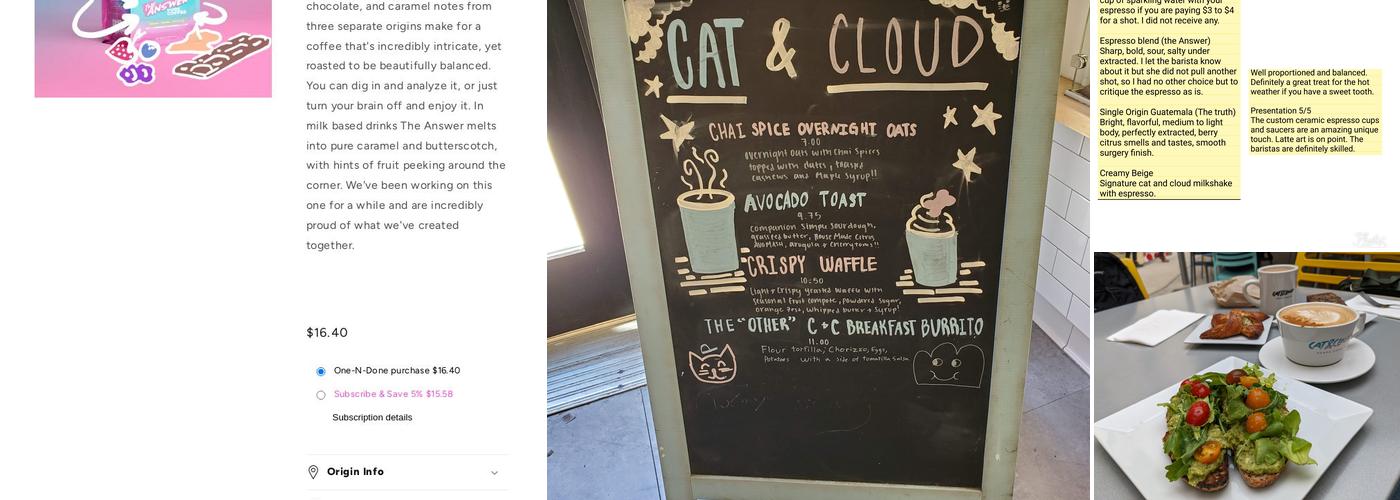 THE
ANSWER
chocolate, and caramel notes from
three separate origins make for a
coffee that's incredibly intricate, yet
roasted to be beautifully balanced.
You can dig in and analyze it, or just
turn your brain off and enjoy it. In
milk based drinks The Answer melts
into pure caramel and butterscotch,
with hints of fruit peeking around the
corner. We've been working on this
one for a while and are incredibly
proud of what we've created
together.
$16.40
One-N-Done purchase $16.40
Subscribe & Save 5% $15.58
Subscription details
Origin Info
CAT & CLOUD
CHAI SPICE OVERNIGHT OATS
7.00
overnight oats with Chai Spices
topped with dates, toasted
cashews and Maple Syrup!!
AVOCADO TOAST
9.75
Companion Simple Sourdough,
grassfed butter, House Made Citrus
AvoMASH, Arugula & Cherry toms!!
CRISPY WAFFLE
10.50
Light & Crispy Yeasted Waffle with
Seasonal Fruit compote, powdered Sugar,
orange zest, whipped butter & Syrup!
THE "OTHER" C+C BREAKFAST BURRITO
11.00
Flour tortilla, Chorizo, Eggs,
Potatoes with a side of tomatillo Salsa
cup of sparkling water with your
espresso if you are paying $3 to $4
for a shot. I did not receive any.
Espresso blend (the Answer)
Sharp, bold, sour, salty under
extracted. I let the barista know
about it but she did not pull another
shot, so I had no other choice but to
critique the espresso as is.
Single Origin Guatemala (The truth)
Bright, flavorful, medium to light
body, perfectly extracted, berry
citrus smells and tastes, smooth
surgery finish.
Creamy Beige
Signature cat and cloud milkshake
with espresso.
Well proportioned and balanced.
Definitely a great treat for the hot
weather if you have a sweet tooth.
Presentation 5/5
The custom ceramic espresso cups
and saucers are an amazing unique
touch. Latte art is on point. The
baristas are definitely skilled.
CAT&CLOUD